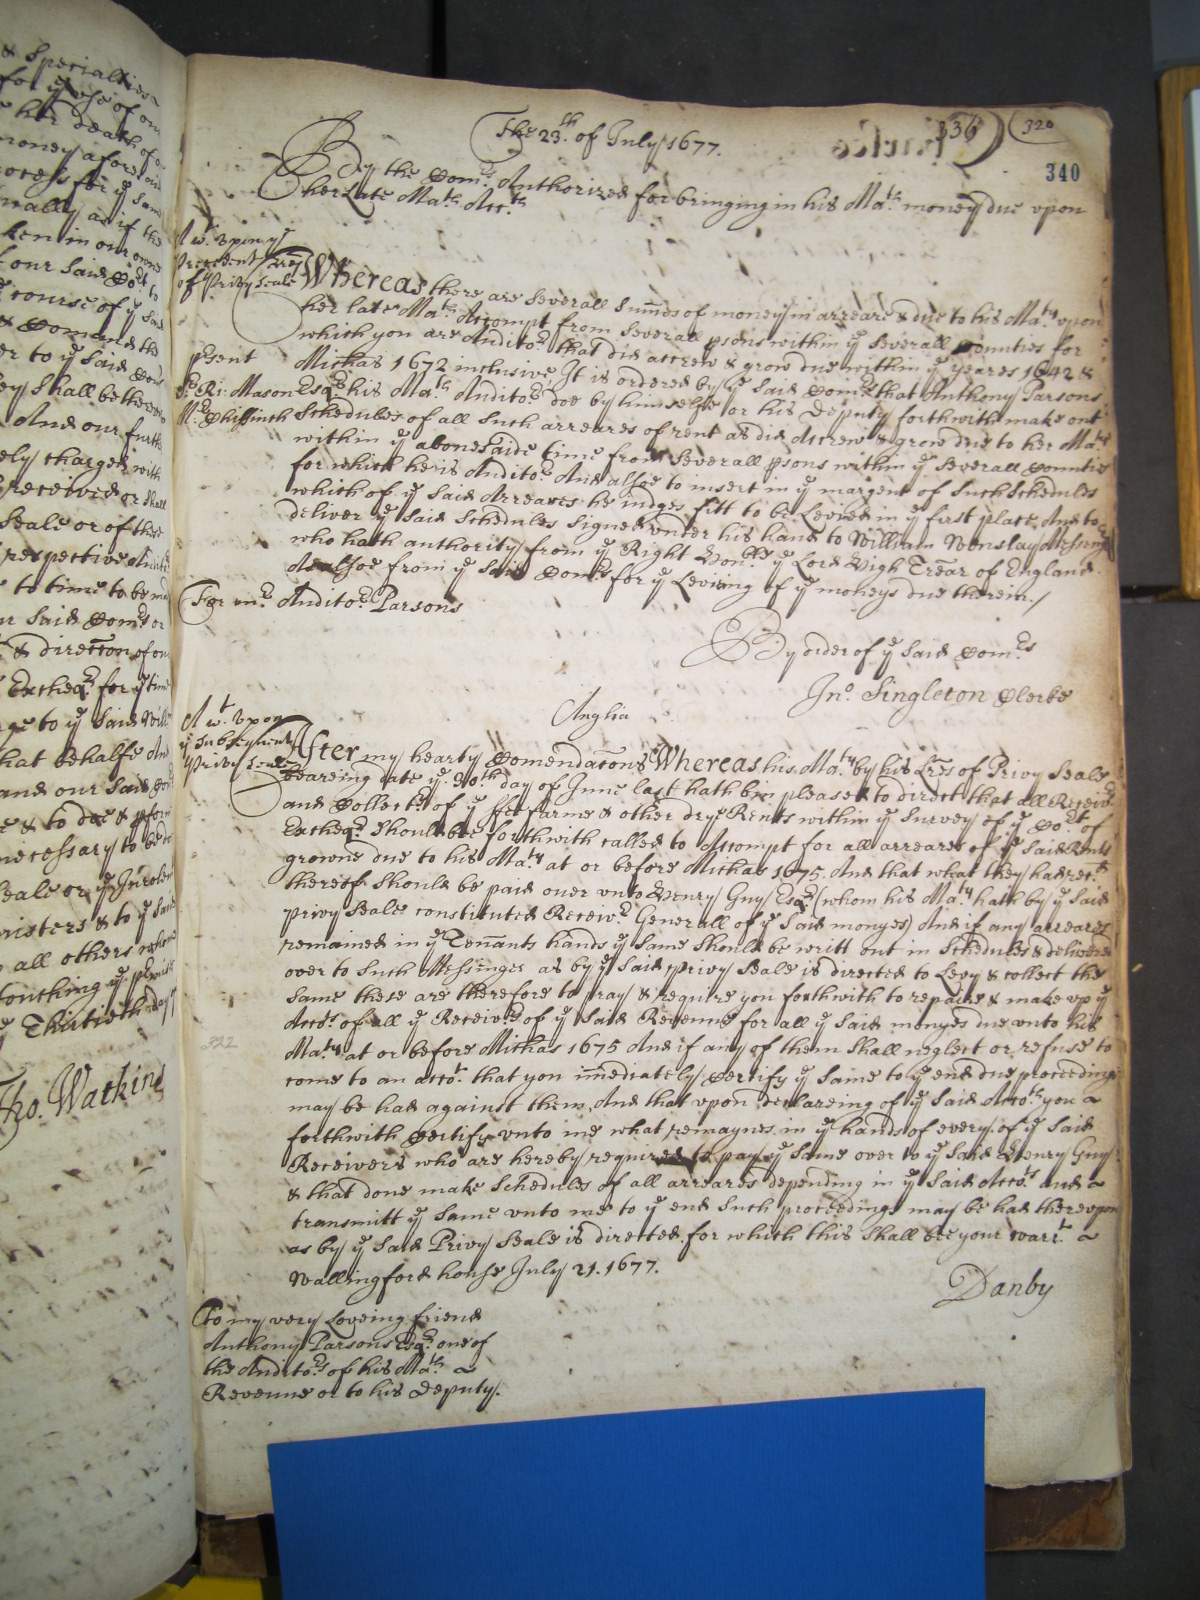 & Specialties
for ye vse of our
her death of
money afores
process for ye Same
ually as if the
ken in our owne
our said Cot to
course of ye said
& Comand the
er to ye said
ey shall be therevn
And our furth
ely charged with
received or shall
Seale or of these
respective Audit
to time to be ma
r said Coms or
& direction of our
Excheqr for ye time
ge to ye said Will
hat behalfe And
and our said
e & to doe & pfor
necessary to be
Seale or ye Inrolem
nisters & to ye said
all others whom
touching ye pmiss
ye Thirtieth day
Tho. Watkins
336 320
340
The 23th. of July 1677.
By the Comrs. Authorized for bringing in his Mats. money due vpon
her Late Mats. Acct.
A wt. vpon ye
Precedent
of Privy Seale
Whereas there are Severall Summes of money in arreare & due to his Maty vpon
her late Mats. Accompt from Severall psons within ye Severall Counties for
which you are Auditor. that did accrew & grow due within ye yeares 1642 &
psent Michas 1672 inclusive It is ordered by ye Said Comrs that Anthony Parsons
Sr. Ri: Mason Esqr. his Mats. Auditor doe by himselfe or his Deputy forthwith make out
Mr. Chiffinch Schedules of all Such arreares of rent as did Accrew & grow due to her Maty
within ye abovesaide time from Severall psons within ye Severall Counties
for which he is Auditor. And alsoe to insert in ye margent of Such Schedules
which of ye Said Arreares he iudges fitt to be Levied in ye first place, And to
deliver ye Said Schedules Signed vnder his hand to William Wenslay Messengr
who hath authority from ye Right Honble. ye Lord High Trear of England
As alsoe from ye Said Comrs for ye Leviing of ye moneys due therein./
For mr. Auditor. Parsons
By order of ye Said Comrs
Jno. Singleton Clerke
Anglia
A wt. vpon
ye Subsequent
Privy Seale
After my hearty Comendacons Whereas his Maty by his Lres of Privy Seale
beareing date ye. 20th. day of June last hath bin pleased to direct that all Receivrs.
and Collectrs of ye Fee farme & other drye Rents within ye Survey of ye Cort. of
Excheqr. should bee forthwith called to Accompt for all arreares of ye Said Rents
growne due to his Maty at or before Michas 1675. And that what they had recd
thereof should be paid over vnto Henry Guy Esqr. (whom his Maty. hath by ye Said
Privy Seale constituted Receivr. Generall of ye Said monyes) And if any arreares
remained in ye Tennants hands ye Same should be writt out in Schedules & delivered
over to Such Messinger as by ye Said Privy Seale is directed to Levy & collect the
same these are therefore to pray & require you forthwith to repaire & make vp ye
Accots. of all ye Receivrs of ye Said Revenue for all ye Said monyes due vnto his
322
Maty at or before Michas 1675 And if any of them Shall neglect or refuse to
come to an accot. that you imediately Certify ye Same to ye end due proceedings
may be had against them, And that vpon declareing of ye Said Accots. you
forthwith Certify vnto me what remaynes in ye hands of every of ye Said
Receivers who are hereby required to pay ye Same over to ye Said Henry Guy
& that done make Schedules of all arreares depending in ye Said Accots. and
transmitt ye Same vnto me to ye end Such proceedings may be had therevpon
as by ye Said Privy Seale is directed, for which this Shall bee your warrt.
Wallingford house July 21. 1677.
Danby
To my very Loveing friend
Anthony Parsons Esqr. one of
the Auditors. of his Mats.
Revenue or to his Deputy.